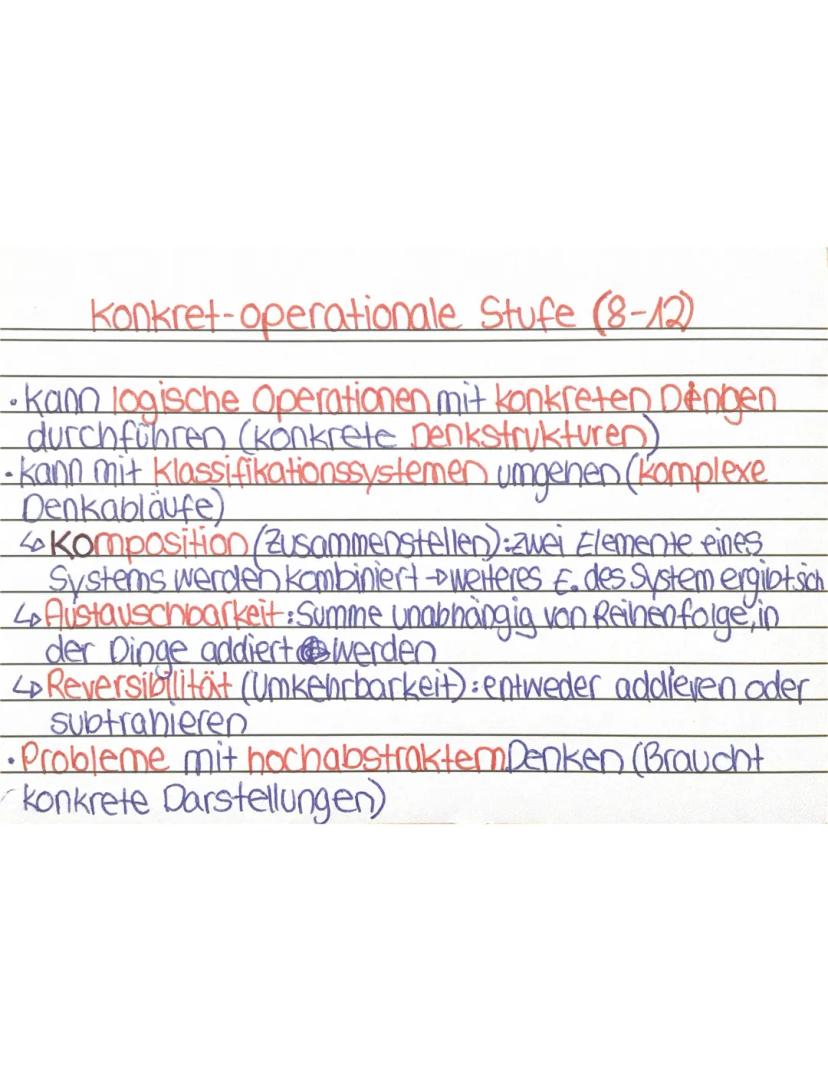 Konkret-operationale Stufe (8-12)
· kann logische Operationen mit konkreten Dingen
durchführen (konkrete Denkstrukturen)
· kann mit Klassifikationssystemen umgehen (komplexe
Denkabläufe)
↳ Komposition (Zusammenstellen): zwei Elemente eines
Systems werden kombiniert → weiteres E. des System ergibt sich
↳ Austauschbarkeit: Summe unabhängig von Reihenfolge, in
der Dinge addiert werden
↳ Reversibilität (Umkehrbarkeit): entweder addieren oder
subtrahieren
· Probleme mit hochabstraktem Denken (Braucht
konkrete Darstellungen)